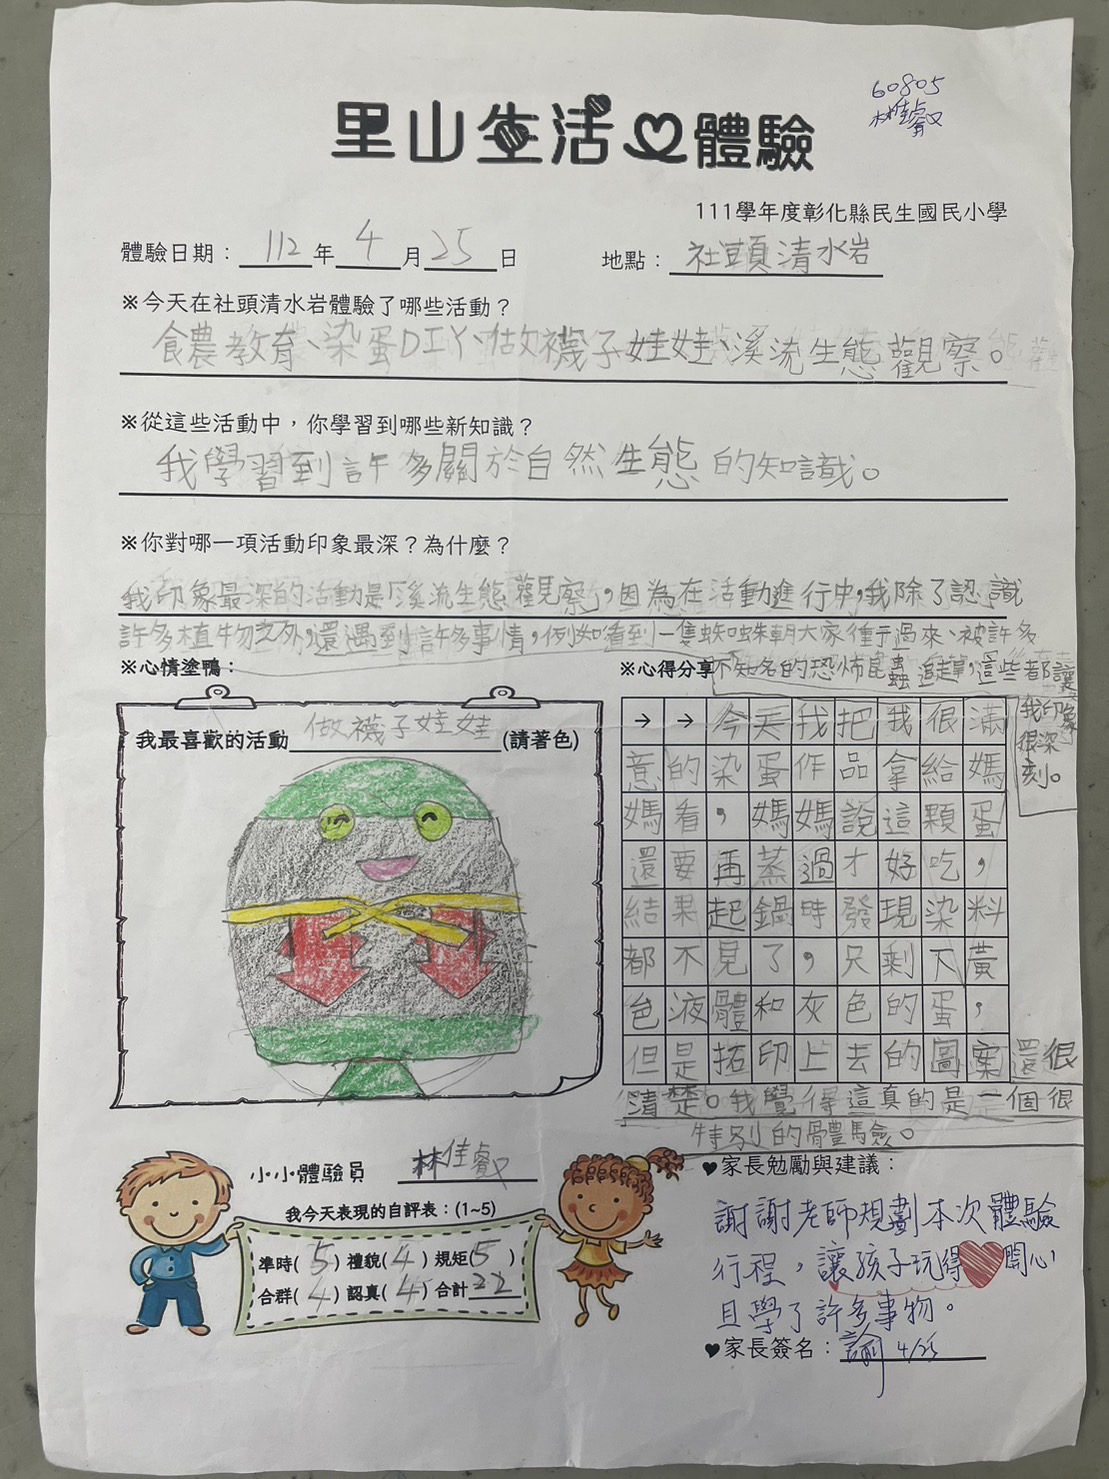 60805
林佳叡
里山生活心體驗
111學年度彰化縣民生國民小學
體驗日期：112年4月25日 地點：社頭清水岩
※今天在社頭清水岩體驗了哪些活動？
食農教育、染蛋DIY、做襪子娃娃、溪流生態觀察。
※從這些活動中，你學習到哪些新知識？
我學習到許多關於自然生態的知識。
※你對哪一項活動印象最深？為什麼？
我印象最深的活動是「溪流生態觀察」，因為在活動進行中，我除了認識
許多植物之外，還遇到許多事情，例如看到一隻蜘蛛朝大家衝過來、被許多
不知名的恐怖昆蟲追趕，這些都讓
我印象
很深
刻。
※心情塗鴨：
我最喜歡的活動做襪子娃娃(請著色)
※心得分享
→→今天我把我很滿
意的染蛋作品拿給媽
媽看，媽媽說這顆蛋
還要再蒸過才好吃，
結果起鍋時發現染料
都不見了，只剩下黃
色液體和灰色的蛋，
但是拓印上去的圖案還很
清楚。我覺得這真的是一個很
特別的體驗。
小小體驗員 林佳叡
我今天表現的自評表：(1~5)
準時(5) 禮貌(4) 規矩(5)
合群(4) 認真(4) 合計22
♥家長勉勵與建議：
謝謝老師規劃本次體驗
行程，讓孩子玩得開心
且學了許多事物。
♥家長簽名： 4/25